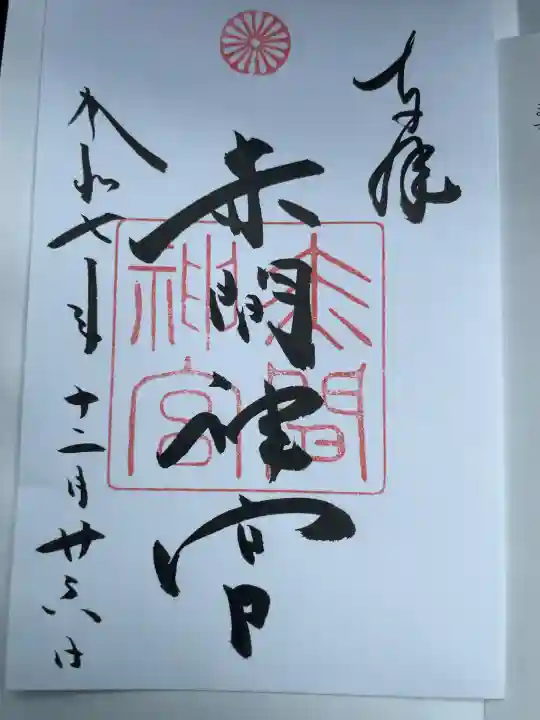 奉拝
赤間神宮
赤間
神宮
令和七年十二月廿六日